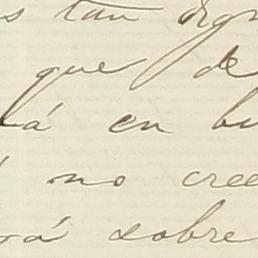 s tan dign
que de
tá en bu
no cree
rá sobre